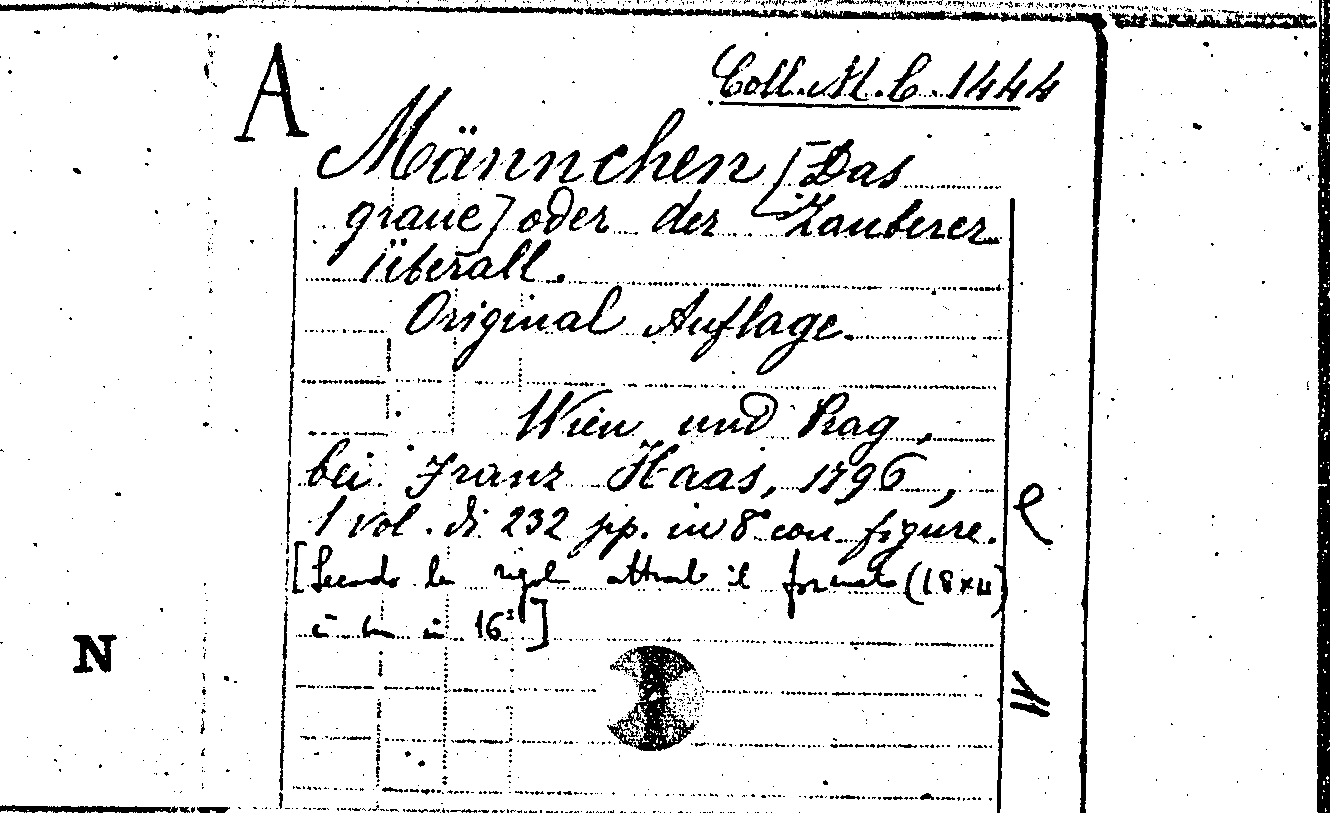 A
Coll. M. C. 1444
Männchen [Das
graue] oder der Zauberer
überall.
Original Auflage.
Wien und Prag,
bei Franz Haas, 1796,
1 vol. di 232 pp. in 8° con figure.
[Secondo la regola attuale il formato (18×11)
è un in 16°]
N